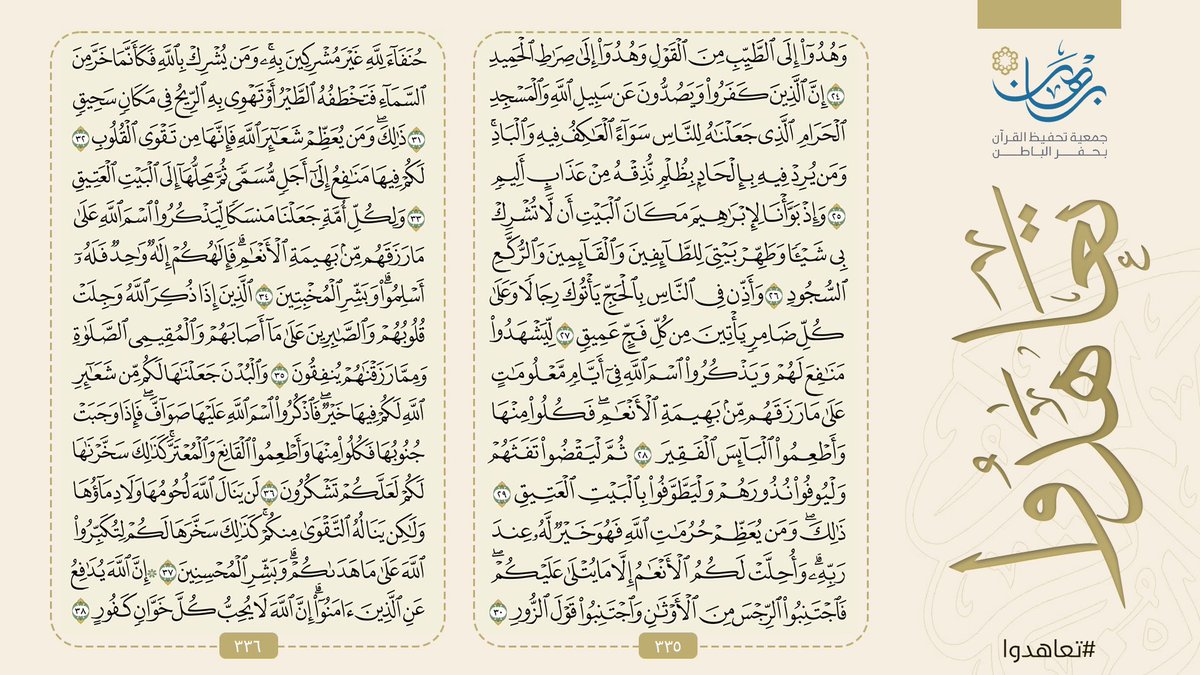 وَهُدُوٓاْ إِلَى ٱلطَّيِّبِ مِنَ ٱلۡقَوۡلِ وَهُدُوٓاْ إِلَىٰ صِرَٰطِ ٱلۡحَمِيدِ
٢٤ إِنَّ ٱلَّذِينَ كَفَرُواْ وَيَصُدُّونَ عَن سَبِيلِ ٱللَّهِ وَٱلۡمَسۡجِدِ
ٱلۡحَرَامِ ٱلَّذِي جَعَلۡنَٰهُ لِلنَّاسِ سَوَآءً ٱلۡعَٰكِفُ فِيهِ وَٱلۡبَادِۚ
وَمَن يُرِدۡ فِيهِ بِإِلۡحَادِۭ بِظُلۡمٖ نُّذِقۡهُ مِنۡ عَذَابٍ أَلِيمٖ
٢٥ وَإِذۡ بَوَّأۡنَا لِإِبۡرَٰهِيمَ مَكَانَ ٱلۡبَيۡتِ أَن لَّا تُشۡرِكۡ
بِي شَيۡـٔٗا وَطَهِّرۡ بَيۡتِيَ لِلطَّآئِفِينَ وَٱلۡقَآئِمِينَ وَٱلرُّكَّعِ
ٱلسُّجُودِ ٢٦ وَأَذِّن فِي ٱلنَّاسِ بِٱلۡحَجِّ يَأۡتُوكَ رِجَالٗا وَعَلَىٰ
كُلِّ ضَامِرٖ يَأۡتِينَ مِن كُلِّ فَجٍّ عَمِيقٖ ٢٧ لِّيَشۡهَدُواْ
مَنَٰفِعَ لَهُمۡ وَيَذۡكُرُواْ ٱسۡمَ ٱللَّهِ فِيٓ أَيَّامٖ مَّعۡلُومَٰتٍ
عَلَىٰ مَا رَزَقَهُم مِّنۢ بَهِيمَةِ ٱلۡأَنۡعَٰمِۖ فَكُلُواْ مِنۡهَا
وَأَطۡعِمُواْ ٱلۡبَآئِسَ ٱلۡفَقِيرَ ٢٨ ثُمَّ لۡيَقۡضُواْ تَفَثَهُمۡ
وَلۡيُوفُواْ نُذُورَهُمۡ وَلۡيَطَّوَّفُواْ بِٱلۡبَيۡتِ ٱلۡعَتِيقِ ٢٩
ذَٰلِكَۖ وَمَن يُعَظِّمۡ حُرُمَٰتِ ٱللَّهِ فَهُوَ خَيۡرٞ لَّهُۥ عِندَ
رَبِّهِۦۗ وَأُحِلَّتۡ لَكُمُ ٱلۡأَنۡعَٰمُ إِلَّا مَا يُتۡلَىٰ عَلَيۡكُمۡۖ
فَٱجۡتَنِبُواْ ٱلرِّجۡسَ مِنَ ٱلۡأَوۡثَٰنِ وَٱجۡتَنِبُواْ قَوۡلَ ٱلزُّورِ ٣٠
٣٣٥
حُنَفَآءَ لِلَّهِ غَيۡرَ مُشۡرِكِينَ بِهِۦۚ وَمَن يُشۡرِكۡ بِٱللَّهِ فَكَأَنَّمَا خَرَّ مِنَ
ٱلسَّمَآءِ فَتَخۡطَفُهُ ٱلطَّيۡرُ أَوۡ تَهۡوِي بِهِ ٱلرِّيحُ فِي مَكَانٖ سَحِيقٖ
٣١ ذَٰلِكَۖ وَمَن يُعَظِّمۡ شَعَٰٓئِرَ ٱللَّهِ فَإِنَّهَا مِن تَقۡوَى ٱلۡقُلُوبِ ٣٢
لَكُمۡ فِيهَا مَنَٰفِعُ إِلَىٰٓ أَجَلٖ مُّسَمّٗى ثُمَّ مَحِلُّهَآ إِلَى ٱلۡبَيۡتِ ٱلۡعَتِيقِ
٣٣ وَلِكُلِّ أُمَّةٖ جَعَلۡنَا مَنسَكٗا لِّيَذۡكُرُواْ ٱسۡمَ ٱللَّهِ عَلَىٰ
مَا رَزَقَهُم مِّنۢ بَهِيمَةِ ٱلۡأَنۡعَٰمِۗ فَإِلَٰهُكُمۡ إِلَٰهٞ وَٰحِدٞ فَلَهُۥٓ
أَسۡلِمُواْۗ وَبَشِّرِ ٱلۡمُخۡبِتِينَ ٣٤ ٱلَّذِينَ إِذَا ذُكِرَ ٱللَّهُ وَجِلَتۡ
قُلُوبُهُمۡ وَٱلصَّٰبِرِينَ عَلَىٰ مَآ أَصَابَهُمۡ وَٱلۡمُقِيمِي ٱلصَّلَوٰةِ
وَمِمَّا رَزَقۡنَٰهُمۡ يُنفِقُونَ ٣٥ وَٱلۡبُدۡنَ جَعَلۡنَٰهَا لَكُم مِّن شَعَٰٓئِرِ
ٱللَّهِ لَكُمۡ فِيهَا خَيۡرٞۖ فَٱذۡكُرُواْ ٱسۡمَ ٱللَّهِ عَلَيۡهَا صَوَآفَّۖ فَإِذَا وَجَبَتۡ
جُنُوبُهَا فَكُلُواْ مِنۡهَا وَأَطۡعِمُواْ ٱلۡقَانِعَ وَٱلۡمُعۡتَرَّۚ كَذَٰلِكَ سَخَّرۡنَٰهَا
لَكُمۡ لَعَلَّكُمۡ تَشۡكُرُونَ ٣٦ لَن يَنَالَ ٱللَّهَ لُحُومُهَا وَلَا دِمَآؤُهَا
وَلَٰكِن يَنَالُهُ ٱلتَّقۡوَىٰ مِنكُمۡۚ كَذَٰلِكَ سَخَّرَهَا لَكُمۡ لِتُكَبِّرُواْ
ٱللَّهَ عَلَىٰ مَا هَدَىٰكُمۡۗ وَبَشِّرِ ٱلۡمُحۡسِنِينَ ٣٧ ۞ إِنَّ ٱللَّهَ يُدَٰفِعُ
عَنِ ٱلَّذِينَ ءَامَنُوٓاْۗ إِنَّ ٱللَّهَ لَا يُحِبُّ كُلَّ خَوَّانٖ كَفُورٍ ٣٨
٣٣٦
برهان
جمعية تحفيظ القرآن
بحفر الباطن
تعاهدوا
#تعاهدوا